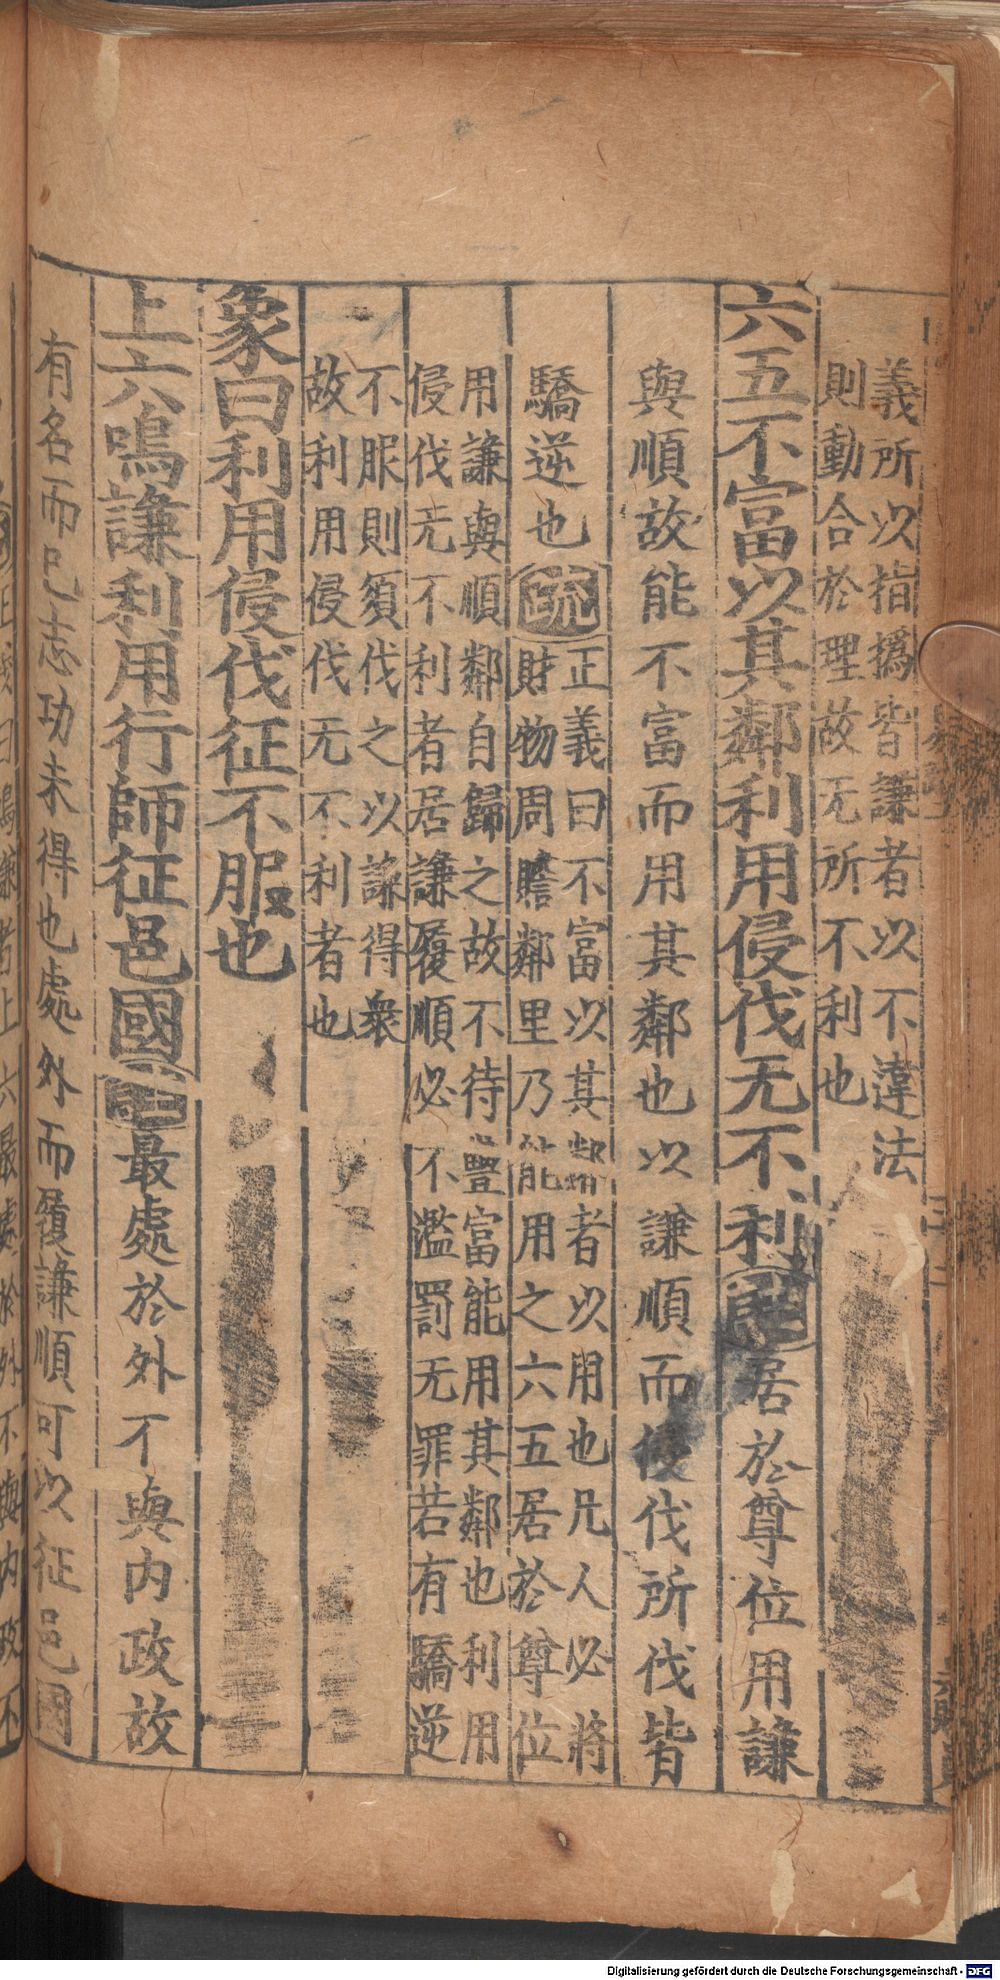 義所以指撝皆謙者以不違法
則動合於理故无所不利也
六五不富以其鄰利用侵伐无不利註居於尊位用謙
與順故能不富而用其鄰也以謙順而侵伐所伐皆
驕逆也疏正義曰不富以其鄰者以用也凡人必將
財物周贍鄰里乃能用之六五居於尊位
用謙與順鄰自歸之故不待豐富能用其鄰也利用
侵伐无不利者居謙履順必不濫罰无罪若有驕逆
不服則須伐之以謙得衆
故利用侵伐无不利者也
象曰利用侵伐征不服也
上六鳴謙利用行師征邑國註最處於外不與内政故
有名而已志功未得也處外而履謙順可以征邑國
正義曰鳴謙者上六最處於外不與内政不
Digitalisierung gefördert durch die Deutsche Forschungsgemeinschaft - DFG